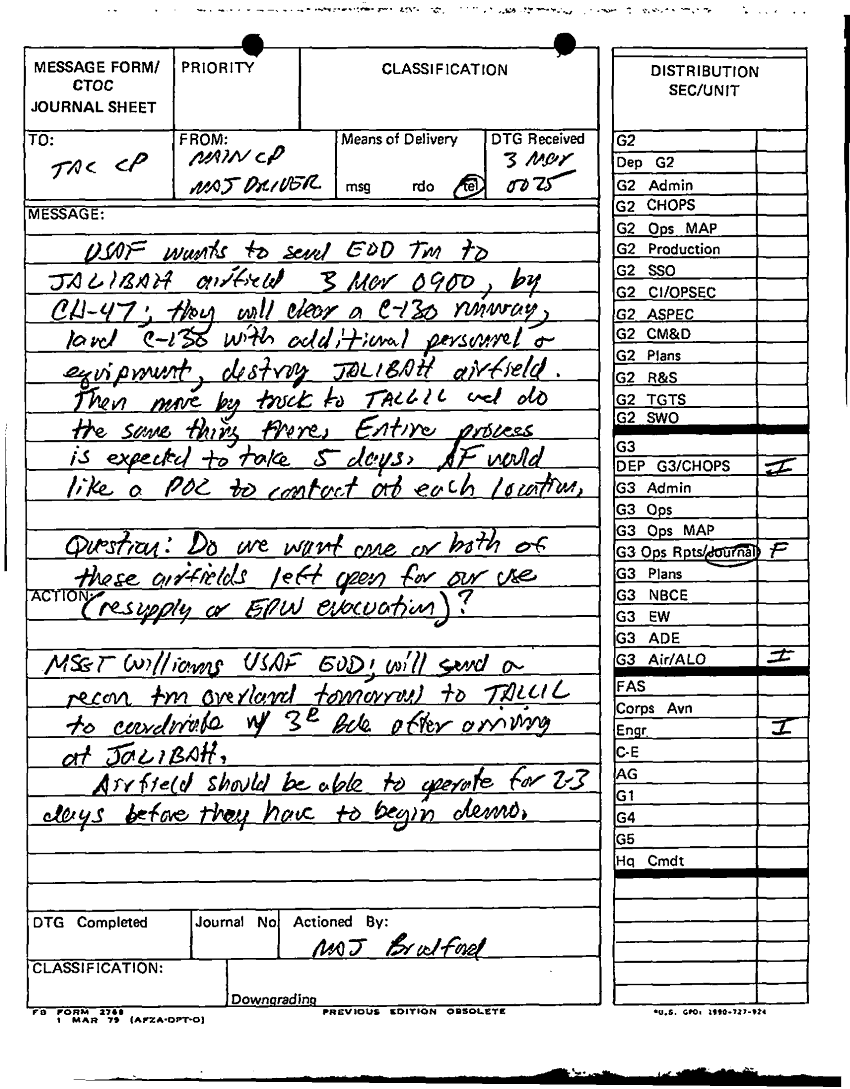 MESSAGE FORM/
CTOC
JOURNAL SHEET
PRIORITY
CLASSIFICATION
TO:
TAC CP
FROM:
MAIN CP
MAJ DRIVER
Means of Delivery
msg rdo tel
DTG Received
3 Mar
0025
MESSAGE:
USAF wants to send EOD Tm to
JALIBAH airfield 3 Mar 0900, by
CH-47; they will clear a C-130 runway,
land C-130 with additional personnel &
equipment, destroy JALIBAH airfield.
Then move by truck to TALLIL and do
the same thing there. Entire process
is expected to take 5 days. AF would
like a POC to contact at each location.
Question: Do we want one or both of
these airfields left open for our use
ACTION:
(resupply or EPW evacuation)?
MSGT Williams USAF EOD; will send a
recon tm overland tomorrow to TALLIL
to coordinate w/ 3D Bde after arriving
at JALIBAH.
Airfield should be able to operate for 2-3
days before they have to begin demo.
DTG Completed
Journal No
Actioned By:
MAJ Bradford
CLASSIFICATION:
Downgrading
FB FORM 2768
1 MAR 79 (AFZA-DPT-O)
PREVIOUS EDITION OBSOLETE
DISTRIBUTION
SEC/UNIT
G2
Dep G2
G2 Admin
G2 CHOPS
G2 Ops MAP
G2 Production
G2 SSO
G2 CI/OPSEC
G2 ASPEC
G2 CM&D
G2 Plans
G2 R&S
G2 TGTS
G2 SWO
G3
DEP G3/CHOPS I
G3 Admin
G3 Ops
G3 Ops MAP
G3 Ops Rpts/Journal F
G3 Plans
G3 NBCE
G3 EW
G3 ADE
G3 Air/ALO I
FAS
Corps Avn
Engr I
C-E
AG
G1
G4
G5
Hq Cmdt
*U.S. GPO: 1990-727-924